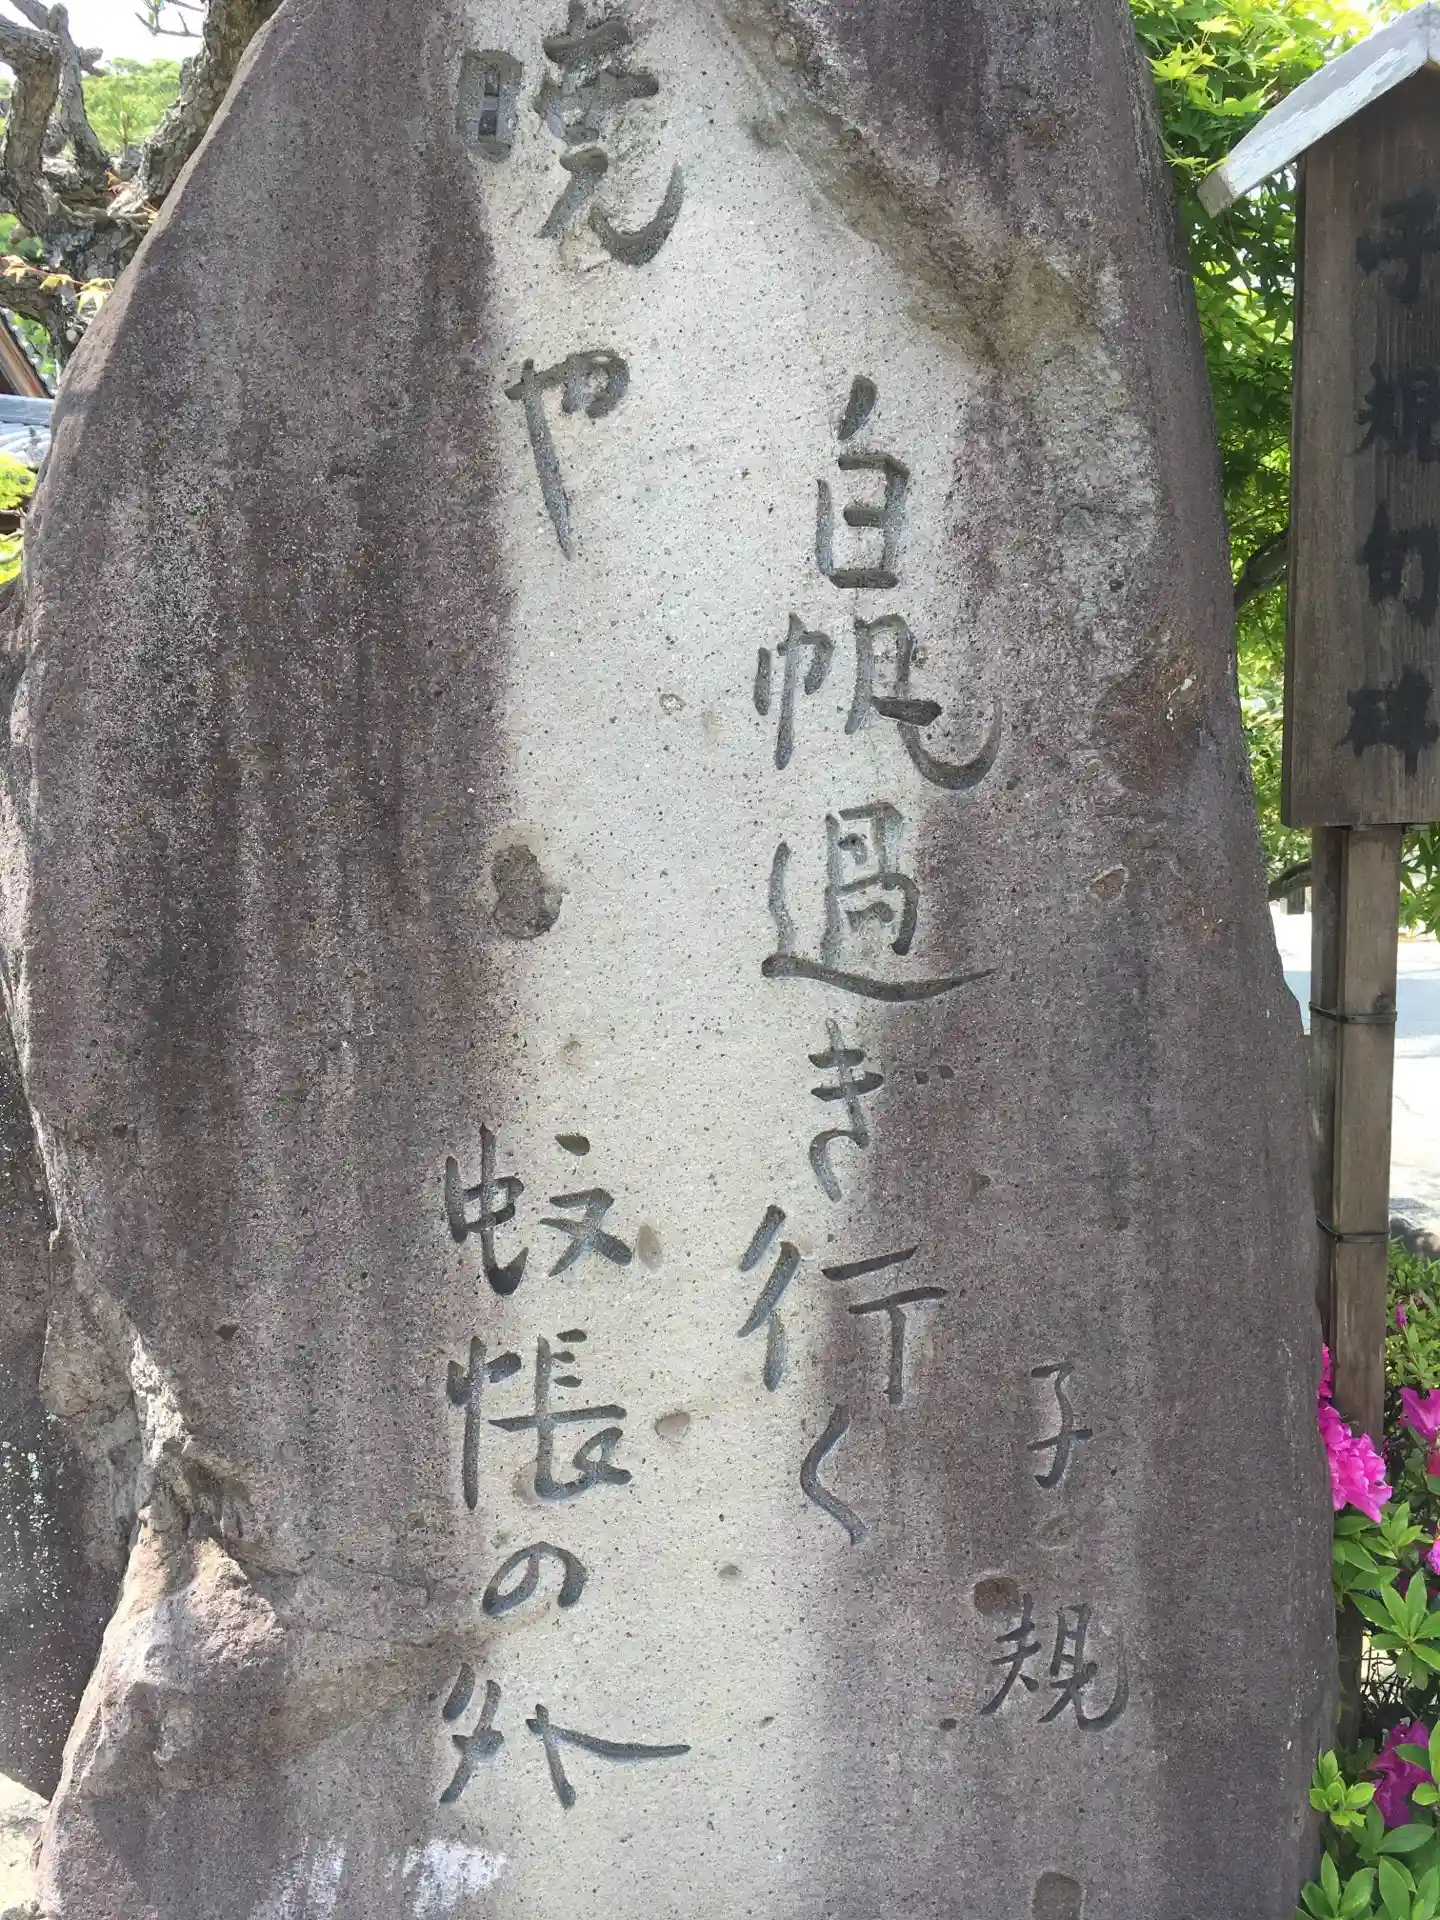 子規句碑
暁や
白帆過ぎ行く
蚊帳の外
子規